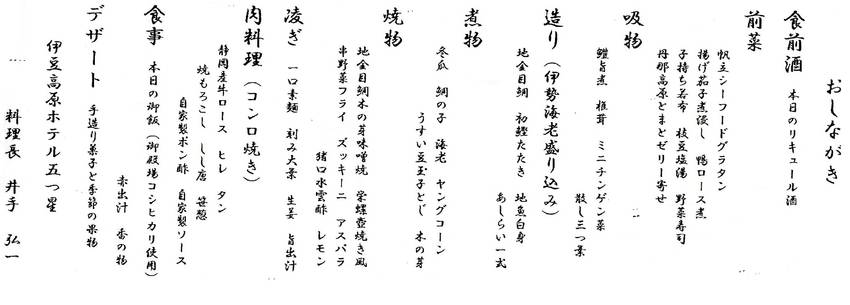 おしながき
食前酒 本日のリキュール酒
前菜
帆立シーフードグラタン
揚げ茄子煮浸し 鴨ロース煮
子持ち若布 枝豆塩湯 野菜寿司
丹那高原とまとゼリー寄せ
吸物
鱧旨煮 椎茸 ミニチンゲン菜
散し三つ葉
造り（伊勢海老盛り込み）
地金目鯛 初鰹たたき 地魚白身
あしらい一式
煮物
冬瓜 鯛の子 海老 ヤングコーン
うすい豆玉子とじ 木の芽
焼物
地金目鯛木の芽味噌焼 栄螺壺焼き風
串野菜フライ ズッキーニ アスパラ
猪口水雲酢 レモン
凌ぎ 一口素麺 刻み大葉 生姜 旨出汁
肉料理（コンロ焼き）
静岡産牛ロース ヒレ タン
焼もろこし しし唐 笹葱
自家製ポン酢 自家製ソース
食事 本日の御飯（御殿場コシヒカリ使用）
赤出汁 香の物
デザート 手造り菓子と季節の果物
伊豆高原ホテル五つ星
料理長 井手 弘一